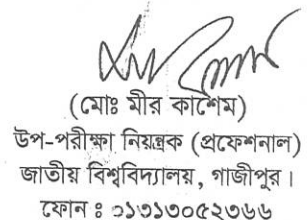 (মোঃ মীর কাশেম)
উপ-পরীক্ষা নিয়ন্ত্রক (প্রফেশনাল)
জাতীয় বিশ্ববিদ্যালয়, গাজীপুর।
ফোন ঃ ০১৩১৩০৫২৩৬৬